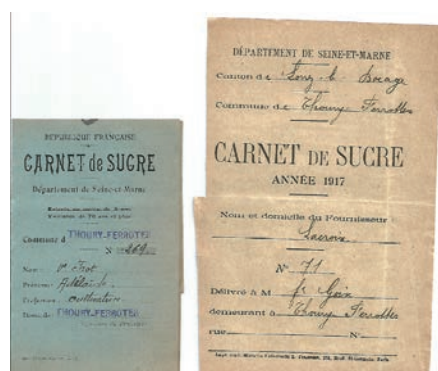 REPUBLIQUE FRANÇAISE
CARNET de SUCRE
Département de Seine-et-Marne
Commune d THOURY-FERROTTES
N° 269
Nom :
Prénoms : Adélaïde
Profession : cultivatrice
Domicile THOURY-FERROTTES
DÉPARTEMENT DE SEINE-ET-MARNE
Canton de Lorrez-le-Bocage
Commune de Thoury Ferrottes
CARNET DE SUCRE
ANNÉE 1917
Nom et domicile du Fournisseur :
Lacroix
N° 71
Délivré à M
demeurant à Thoury Ferrottes
rue N°